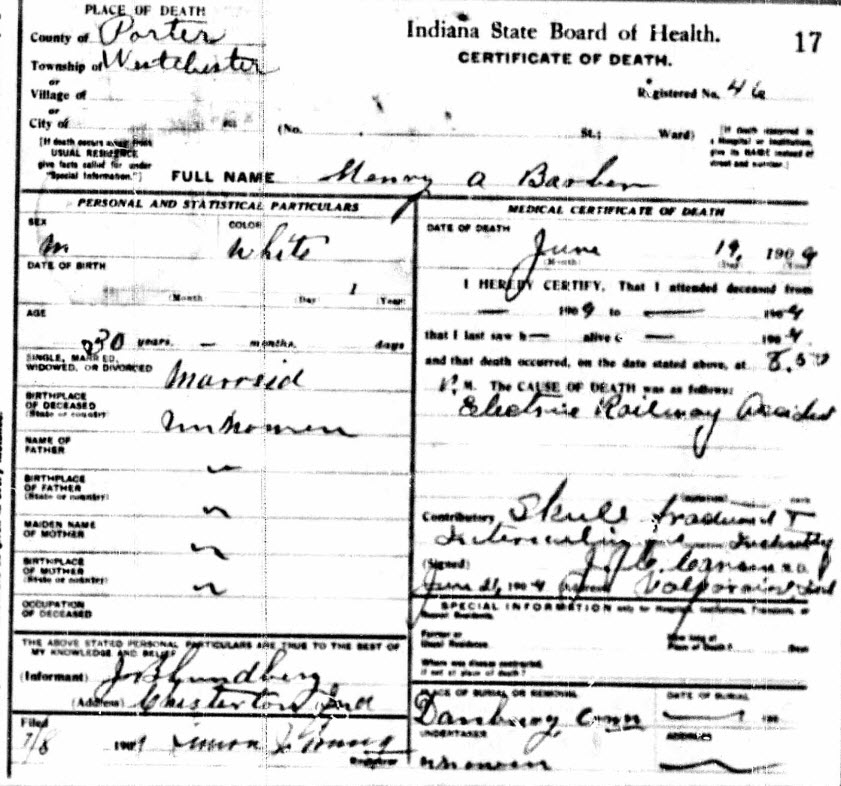 PLACE OF DEATH
County of Porter
Township of Westchester
or
Village of
or
City of
[If death occurs away from
USUAL RESIDENCE
give facts called for under
"Special Information."]
Indiana State Board of Health.
CERTIFICATE OF DEATH.
17
Registered No. 46
(No. St.; Ward)
[If death occurred in
a Hospital or Institution,
give its NAME instead of
street and number.]
FULL NAME Henry A Barber
PERSONAL AND STATISTICAL PARTICULARS
SEX
M
COLOR
White
DATE OF BIRTH
(Month (Day 1 (Year
AGE
30 years, - months, days
SINGLE, MARRIED,
WIDOWED, OR DIVORCED
Married
BIRTHPLACE
OF DECEASED
(State or country)
Unknown
NAME OF
FATHER
"
BIRTHPLACE
OF FATHER
(State or country)
"
MAIDEN NAME
OF MOTHER
"
BIRTHPLACE
OF MOTHER
(State or country)
"
OCCUPATION
OF DECEASED
THE ABOVE STATED PERSONAL PARTICULARS ARE TRUE TO THE BEST OF
MY KNOWLEDGE AND BELIEF
(Informant) J B Lundberg
(Address) Chesterton Ind
Filed
7/8 1909
Registrar
MEDICAL CERTIFICATE OF DEATH
DATE OF DEATH
June 19, 1909
(Month) (Day) (Year)
I HEREBY CERTIFY, That I attended deceased from
— 1909 to — 1909
that I last saw h— alive — 1909
and that death occurred, on the date stated above, at 8.50
P. M. The CAUSE OF DEATH was as follows:
Electric Railway Accident
Contributory Skull fractured
(Signed) M.D.
June 21, 1909 Valparaiso Ind
SPECIAL INFORMATION only for Hospitals, Institutions, Transients, or
Recent Residents.
Former or
Usual Residence
How long at
Place of Death? Days
Where was disease contracted,
if not at place of death?
PLACE OF BURIAL OR REMOVAL
Danbury, Conn
DATE OF BURIAL
190
UNDERTAKER
unknown
ADDRESS